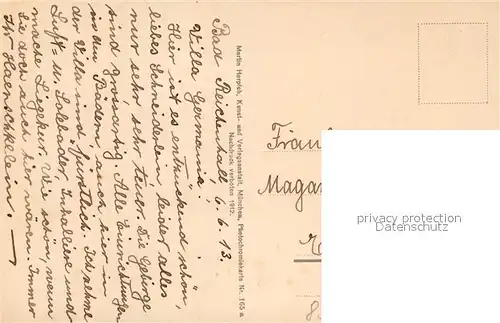 Bad Reichenhall 6.6.13.
Villa Germania
Hier ist es entzückend schön,
liebes Schneiderlein leider alles
nur sehr sehr teuer. Die Gebirge
sind grossartig. Alle Einrichtungen
in den Bädern, auch hier in
der Villa sind fürstlich. Ich nehme
Luft u. Solebäder, Inhaliere und
mache Liegekur. Wie schön, wenn
Sie doch auch hier wären. Immer
Ihr Haenschklein.
Martin Herpich, Kunst- und Verlagsanstalt, München, Photochromiekarte Nr. 165 a
Nachdruck verboten 1912.
Fräul
Magar
privacy protection
service